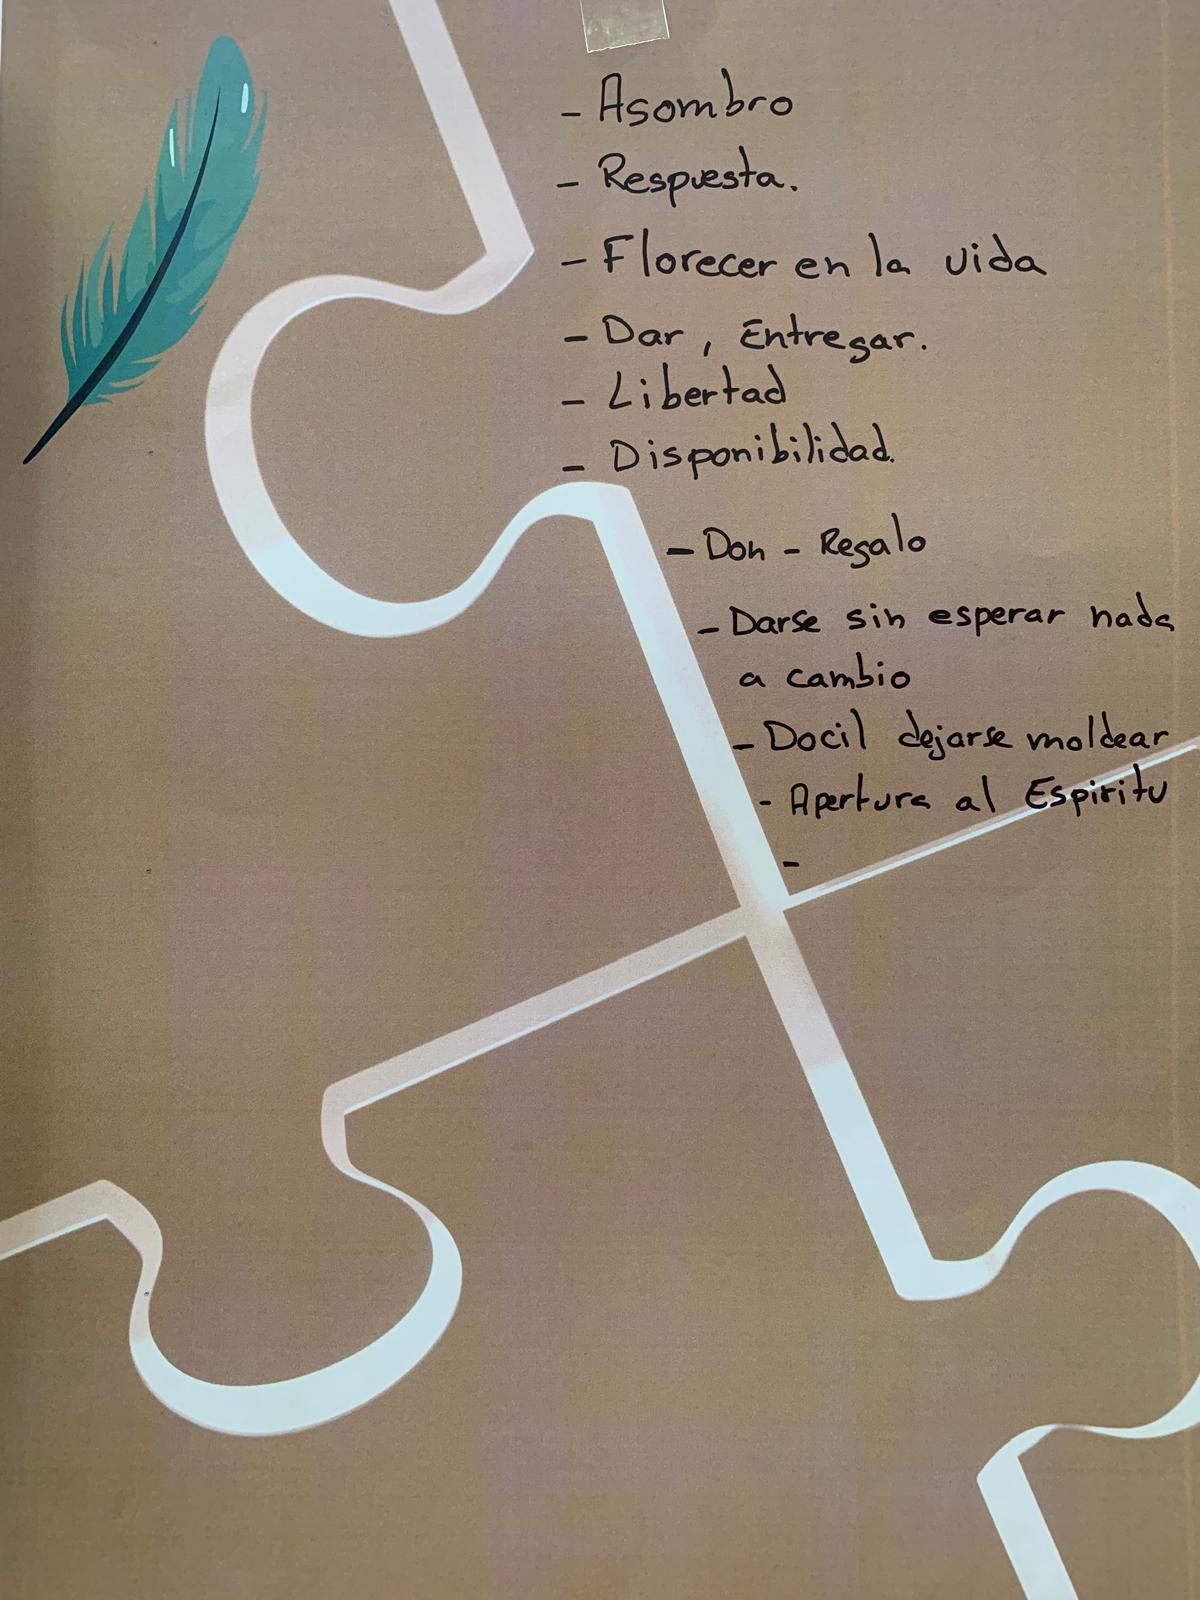 - Asombro
- Respuesta.
- Florecer en la vida
- Dar, Entregar.
- Libertad
- Disponibilidad.
- Don - Regalo
- Darse sin esperar nada
a cambio
- Docil dejarse moldear
- Apertura al Espiritu
-